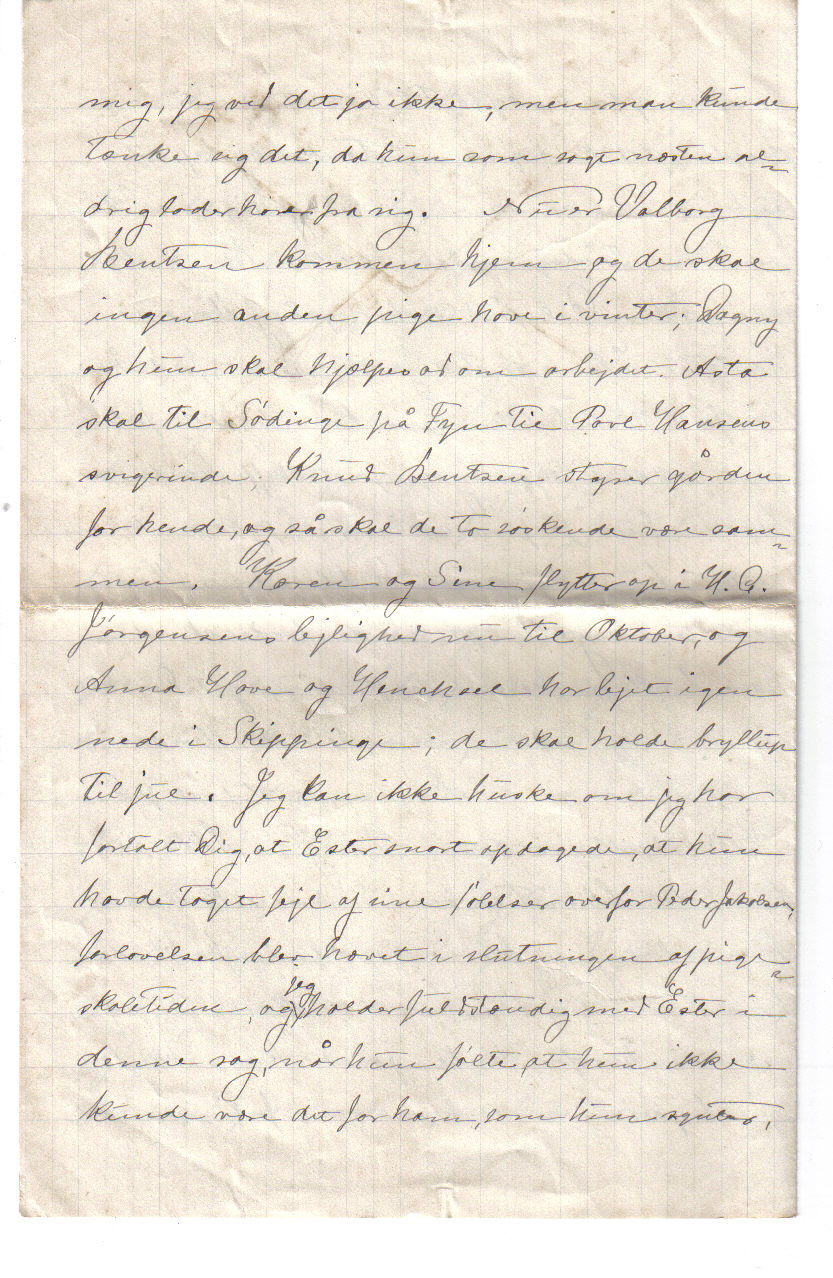 mig, jeg ved det jo ikke, men man kunde
tænke sig det, da hun som sagt næsten al=
drig lader høre fra sig. Nu er Valborg
Bentsen kommen hjem og de skal
ingen anden pige have i vinter; Dagny
og hun skal hjælpes ad om arbejdet. Asta
skal til Sødinge på Fyn til Povl Hansens
svigerinde; Knud Bentsen styrer gården
for hende, og så skal de to søskende være sam=
men. Karen og Sine flytter op i H. P.
Jørgensens lejlighed nu til Oktober, og
Anna Hove og Henchsel har lejet igen
nede i Skippinge; de skal holde bryllup
til jul. Jeg kan ikke huske om jeg har
fortalt Dig, at Ester snart opdagede, at hun
havde taget fejl af sine følelser overfor Peder Jakobsen,
forlovelsen blev hævet i slutningen af pige=
skoletiden, og jeg holder fuldstændig med Ester i
denne sag, når hun følte, at hun ikke
kunde være det for ham, som hun syntes,